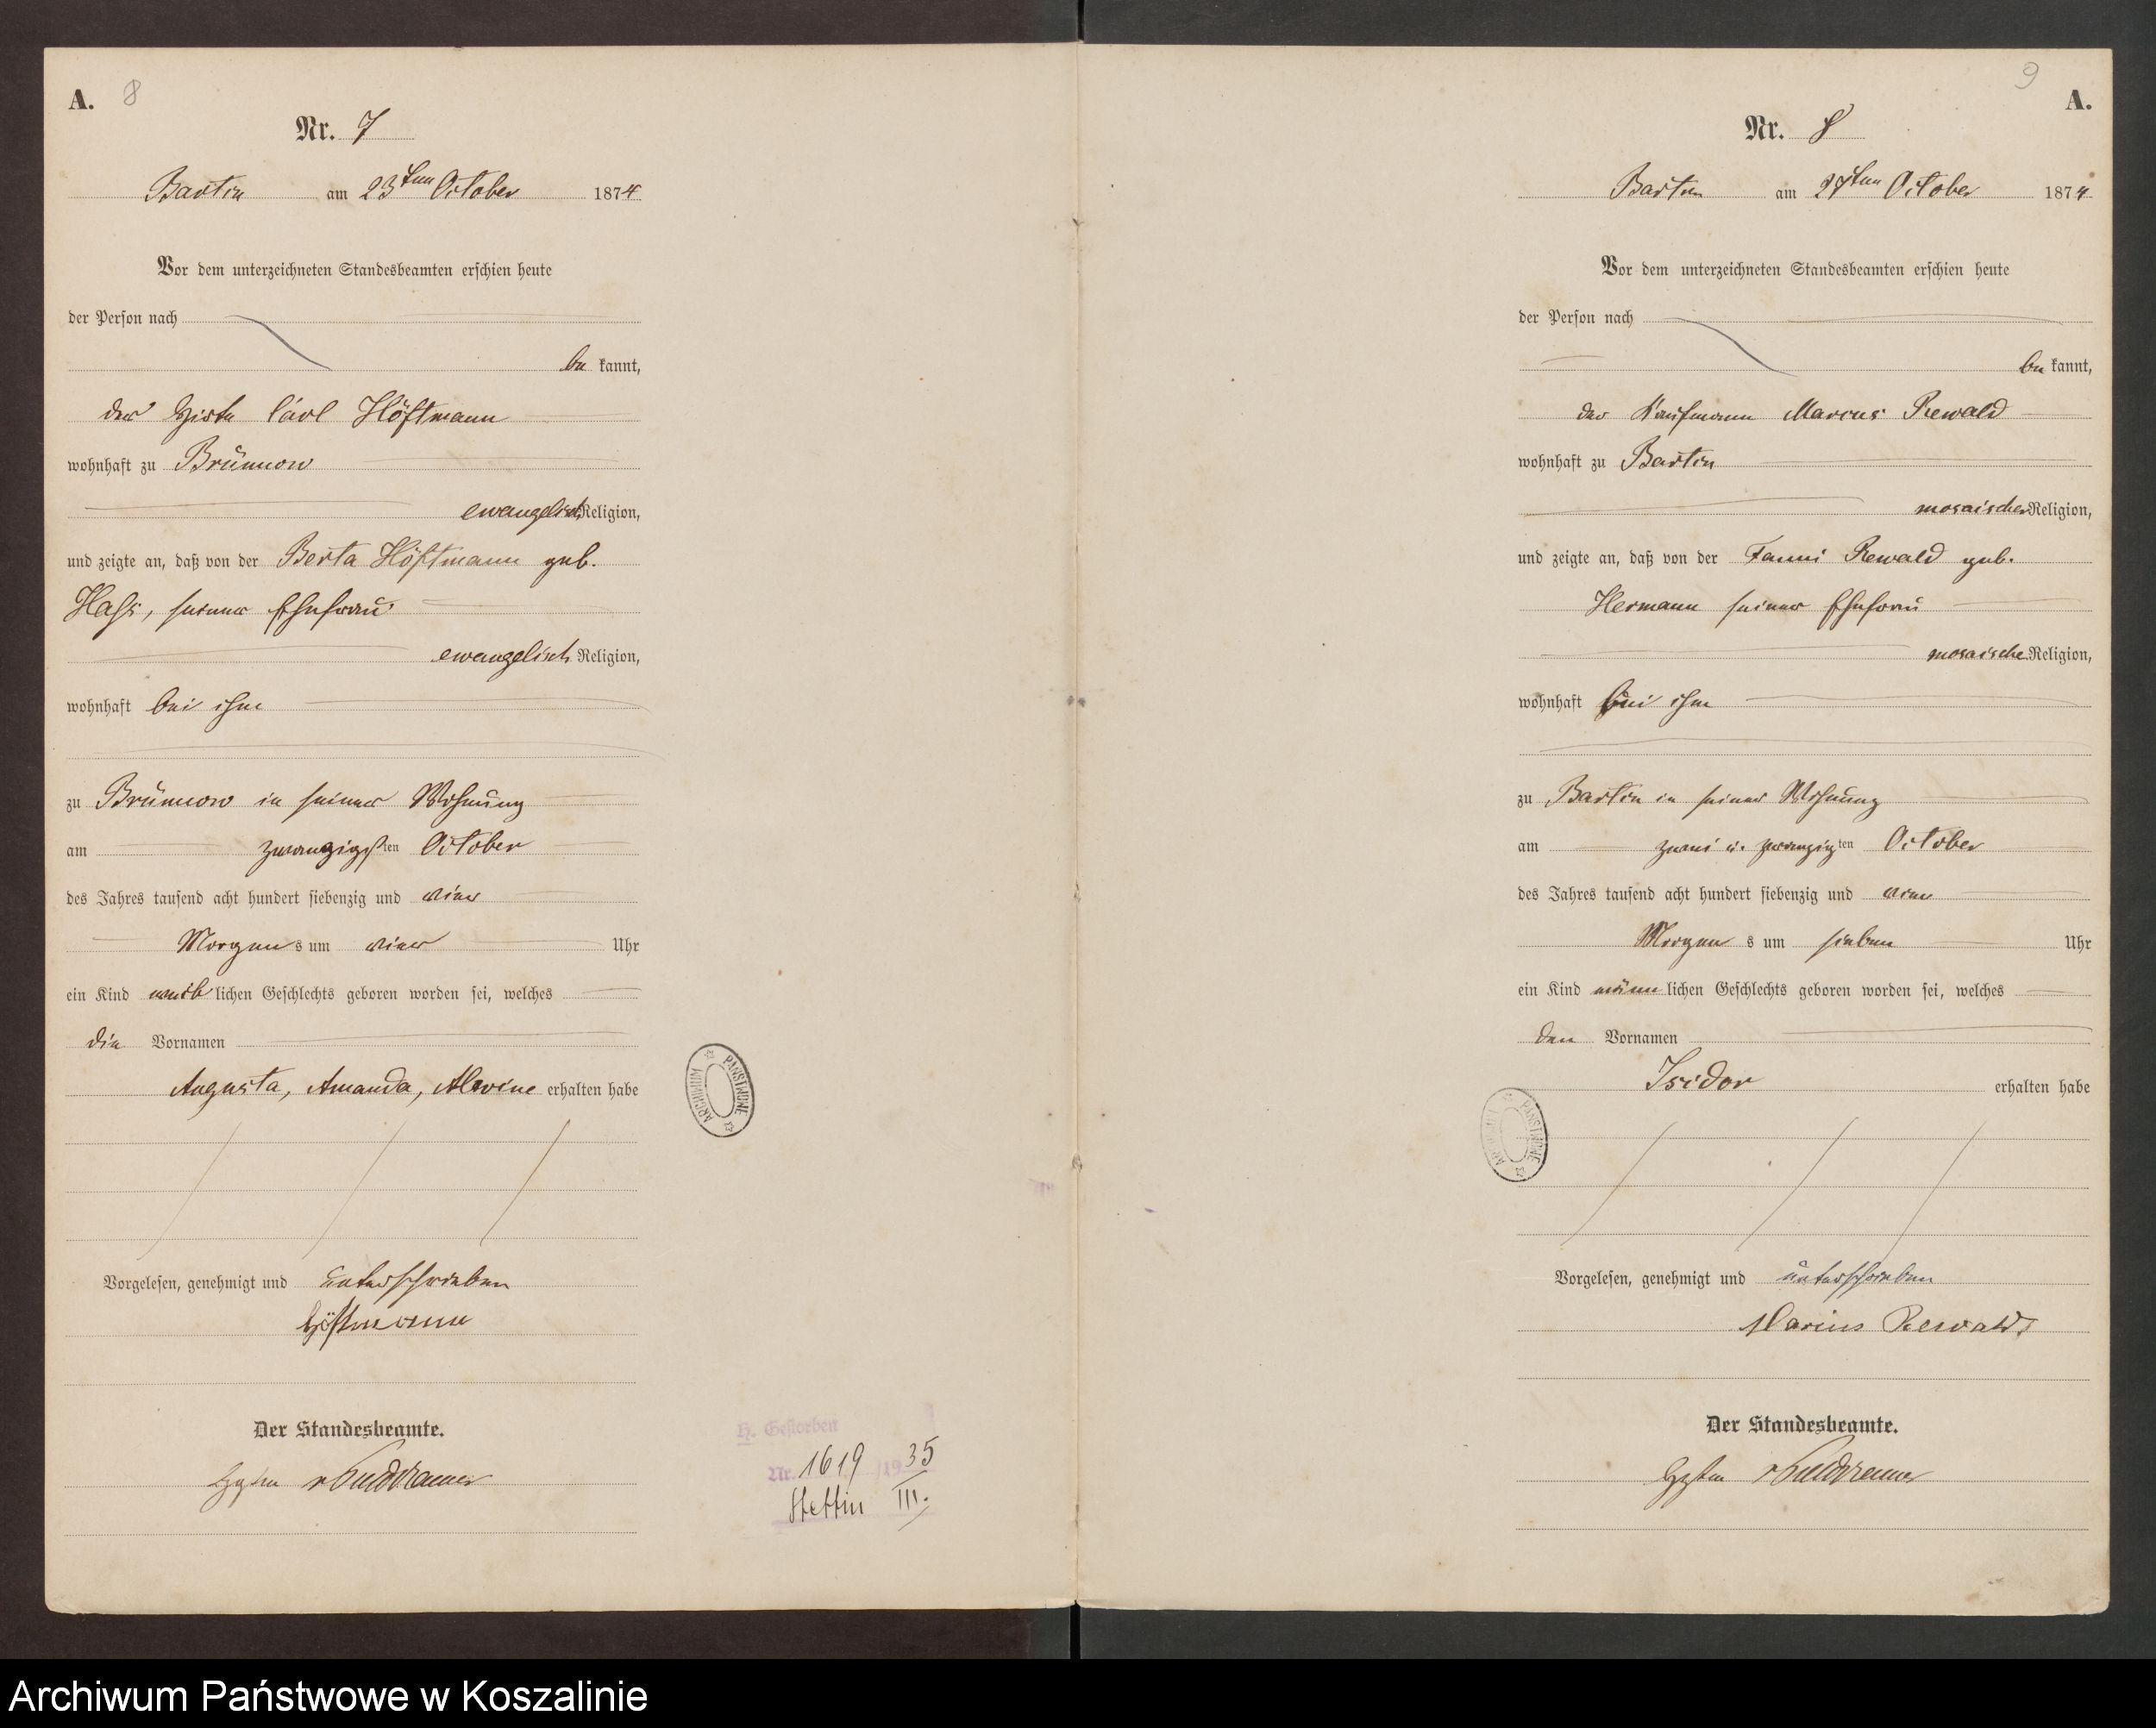 A. 8
Nr. 7
Bartin am 23ten October 1874
Vor dem unterzeichneten Standesbeamten erschien heute
der Person nach
be kannt,
der Hirte Carl Höftmann
wohnhaft zu Brünnow
ewangelisch Religion,
und zeigte an, daß von der Berta Höftmann geb.
Hass, seiner Ehefrau
ewangelisch Religion,
wohnhaft bei ihm
zu Brünnow in seiner Wohnung
am zwanzigsten October
des Jahres tausend acht hundert siebenzig und vier
Morgens um vier Uhr
ein Kind weiblichen Geschlechts geboren worden sei, welches
die Vornamen
Augusta, Amanda, Alwine erhalten habe
ARCHIWUM PAŃSTWOWE
Vorgelesen, genehmigt und unterschrieben
Höftmann
Der Standesbeamte.
H. Gestorben
Nr. 1619 /1935
Stettin III.
9 A.
Nr. 8
Bartin am 27ten October 1874
Vor dem unterzeichneten Standesbeamten erschien heute
der Person nach
be kannt,
der Kaufmann Marcus Rewald
wohnhaft zu Bartin
mosaischer Religion,
und zeigte an, daß von der Fanni Rewald geb.
Hermann seiner Ehefrau
mosaische Religion,
wohnhaft bei ihm
zu Bartin in seiner Wohnung
am zwei u. zwanzigten October
des Jahres tausend acht hundert siebenzig und vier
Morgens um sieben Uhr
ein Kind männlichen Geschlechts geboren worden sei, welches
den Vornamen
Isidor erhalten habe
ARCHIWUM PAŃSTWOWE
Vorgelesen, genehmigt und unterschrieben
Marcus Rewald
Der Standesbeamte.
Archiwum Państwowe w Koszalinie